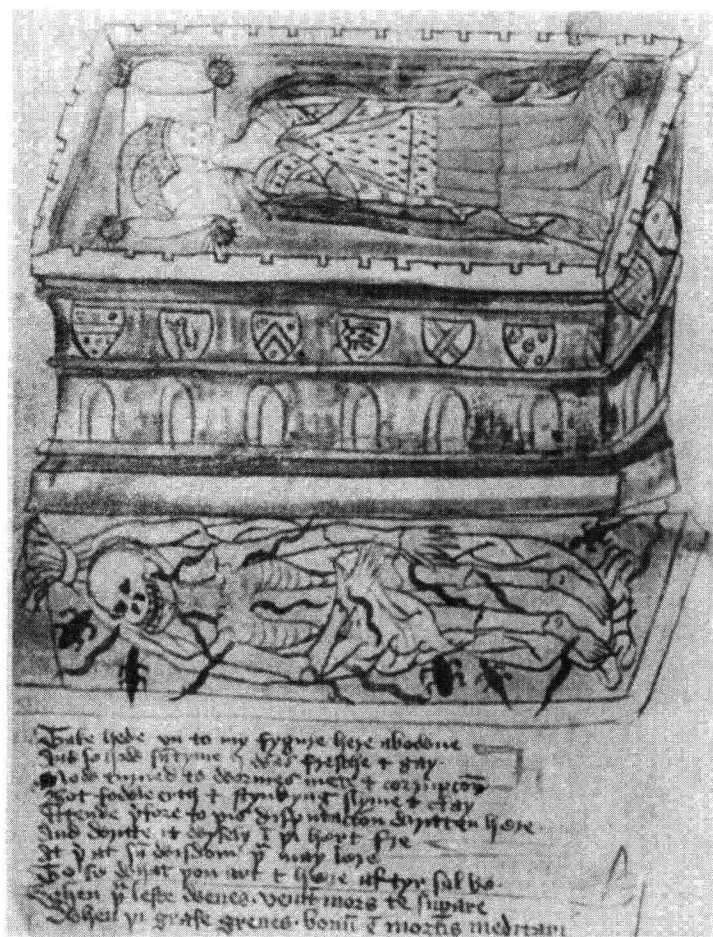 Take hede vn to my fygure here abowne
And se how sūtyme I was fresche & gay
Now turned to wormes mete & corrupcoñ
Bot fowle erth & stynkyng slyme & clay
Attende þfore to þis disputacion written here
And writte it wysely ī þi hert fre
At þ at sū wisdom þū may lere
To se what þou art & here aftyr sal be
When þū leste wenes. venit mors te supare
When þi grafe grenes. bonū ē mortis meditari